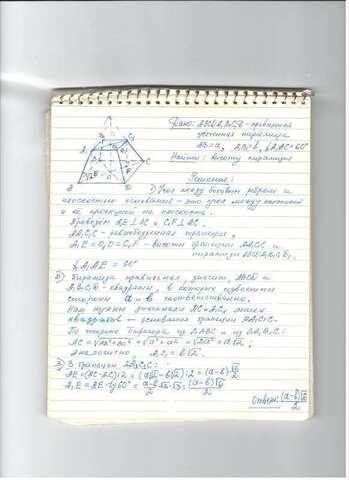 Дано: ABCDA₁B₁C₁D₁ - правильная
усеченная пирамида
AB = a, A₁B₁ = b, ∠A₁AC = 60°
Найти: высоту пирамиды
Решение:
1) Угол между боковым ребром и
плоскостью основания - это угол между наклонной
и её проекцией на плоскость.
Проведём A₁E⊥AC и C₁F⊥AC.
AA₁C₁C - равнобедренная трапеция,
A₁E = O₁O = C₁F - высоты трапеции AA₁C₁C и
пирамиды ABCDA₁B₁C₁D₁.
∠A₁AE = 60°
2) Пирамида правильная, значит, ABCD и
A₁B₁C₁D₁ - квадраты, в которых
стороны a и b соответственно.
Нам нужны диагонали AC и A₁C₁ этих
квадратов - основания трапеции AA₁C₁C.
По теореме Пифагора из △ABC и из △A₁B₁C₁:
AC = √AB²+BC² = √a²+a² = √2a² = a√2;
Аналогично, A₁C₁ = b√2.
3) В трапеции AA₁C₁C:
AE = (AC-A₁C₁):2 = (a√2-b√2):2 = (a-b)√2/2
A₁E = AE·tg60° = (a-b)√2/2·√3 = (a-b)√6/2
Ответ: (a-b)√6/2